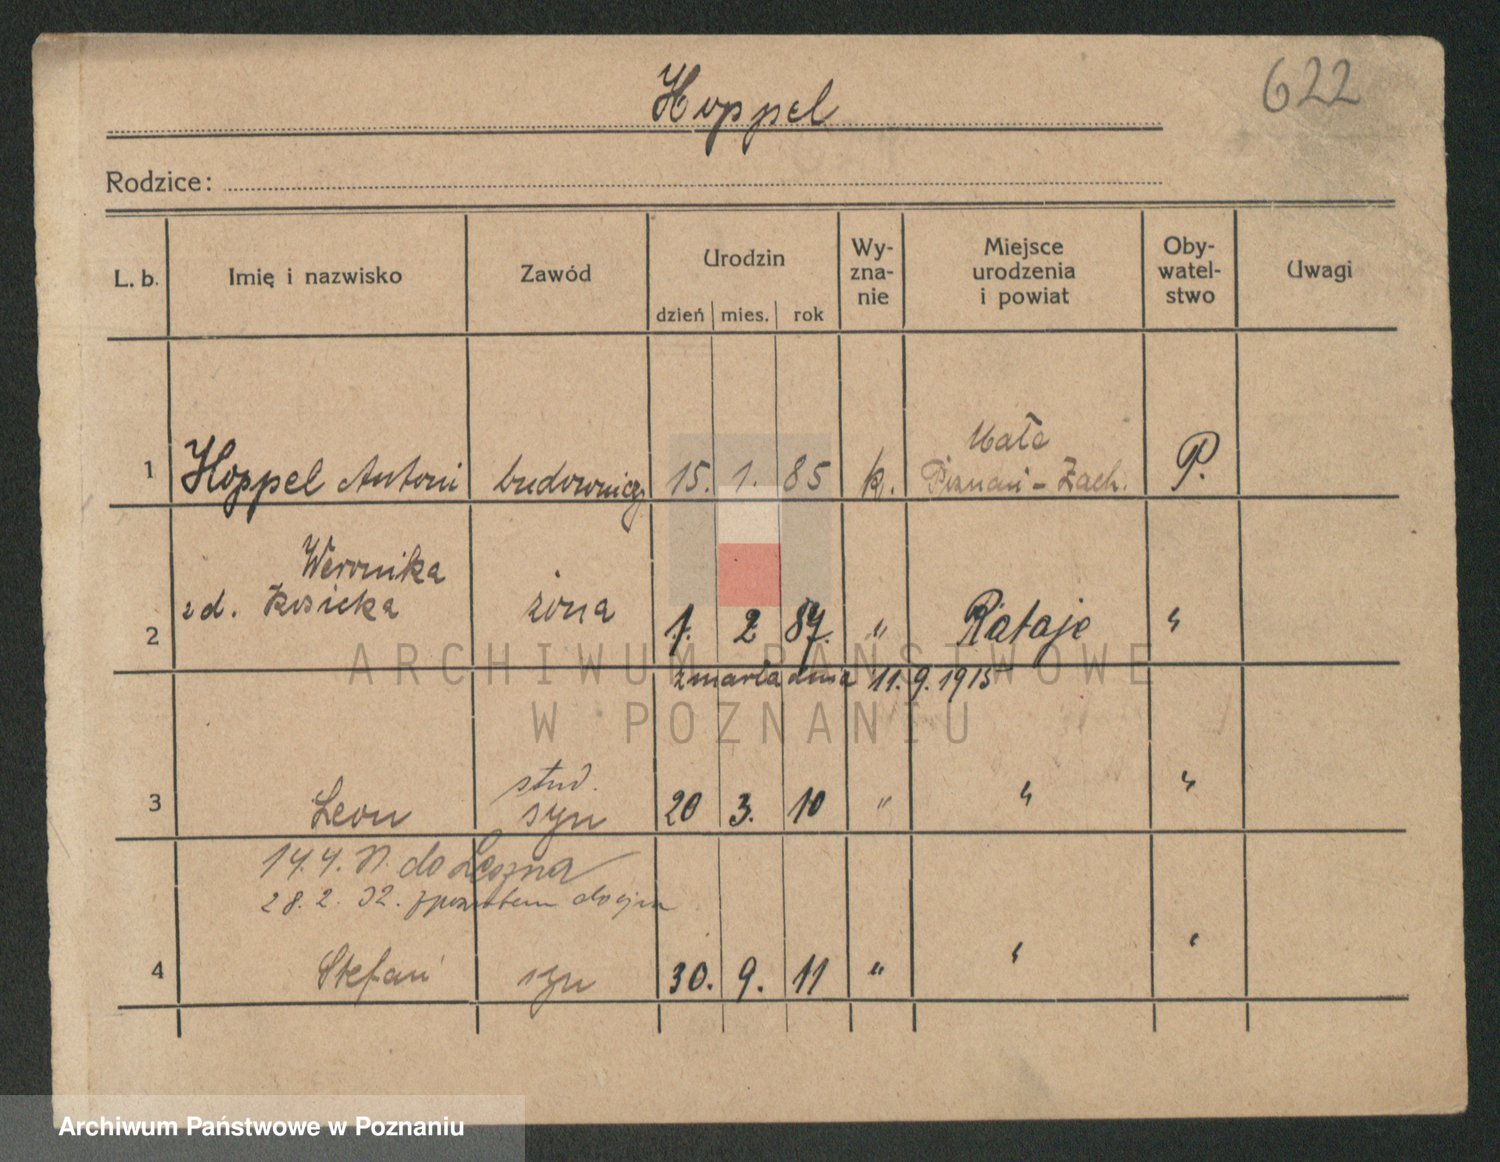 622
Hoppel
Rodzice:
L. b. Imię i nazwisko Zawód Urodzin dzień mies. rok Wy-zna-nie Miejsce urodzenia i powiat Oby-watel-stwo Uwagi
Małe
1 Hoppel Antoni budowniczy 15. 1. 85 k. Poznań - Zach. P.
Weronika
2 zd. żona 1. 2 87. " Rataje "
zmarła dnia 11. 9. 1915
stud.
3 Leon syn 20 3. 10 " " "
do Leszna
28. 2. 32. z powrotem
4 Stefan syn 30. 9. 11 " " "
ARCHIWUM PAŃSTWOWE
W POZNANIU
Archiwum Państwowe w Poznaniu